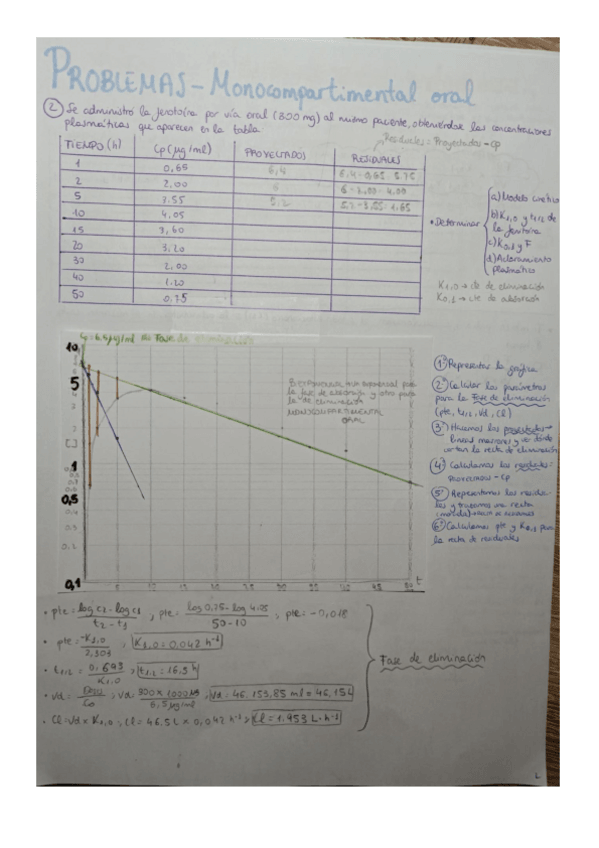 PROBLEMAS - Monocompartimental oral
② Se administró la fenitoína por vía oral (300 mg) al mismo paciente, obteniéndose las concentraciones
plasmáticas que aparecen en la tabla.
Residuales = Proyectados - cp
TIEMPO (h) Cp (μg/ml) PROYECTADOS RESIDUALES
1 0,65 6,4 6,4 - 0,65 5.75
2 2,00 6 6 - 2,00 - 4,00
5 3.55 5,2 5,2 - 3,55 - 1,65
10 4,05
15 3,60
20 3,20
30 2,00
40 1.20
50 0,75
• Determinar
a) Modelo cinético
b) K1,0 y t1/2 de
la fenitoína
c) K0,1 y F
d) Aclaramiento
plasmático
K1,0 → cte de eliminación
K0,1 → cte de absorción
Fase de eliminación
10
5
1
0,5
0,1
t
fase de absorción y otro para
la de eliminación
MONOCOMPARTIMENTAL
ORAL
1º Representar la gráfica
2º Calcular los parámetros
para la Fase de eliminación
(pte, t1/2, Vd, Cl)
3º Hacemos los proyectados →
cortan la recta de eliminación
4º Calculamos los residuales =
proyectados - cp
5º Representamos los residua-
les y trazamos una recta
6º Calculamos pte y K0,1 para
la recta de residuales
• pte = log c2 - log c1 / t2 - t1 ; pte = log 0,75 - log 4.05 / 50 - 10 ; pte = -0,018
• pte = -K1,0 / 2,303 ; K1,0 = 0,042 h⁻¹
• t1/2 = 0,693 / K1,0 ; t1/2 = 16,5 h
• Vd = Dosis / Co ; Vd = 300 x 1000 μg / 6,5 μg/ml ; Vd = 46.153,85 ml = 46,15 L
• Cl = Vd x K1,0 ; Cl = 46,5 L x 0,042 h⁻¹ ; Cl = 1.953 L·h⁻¹
Fase de eliminación